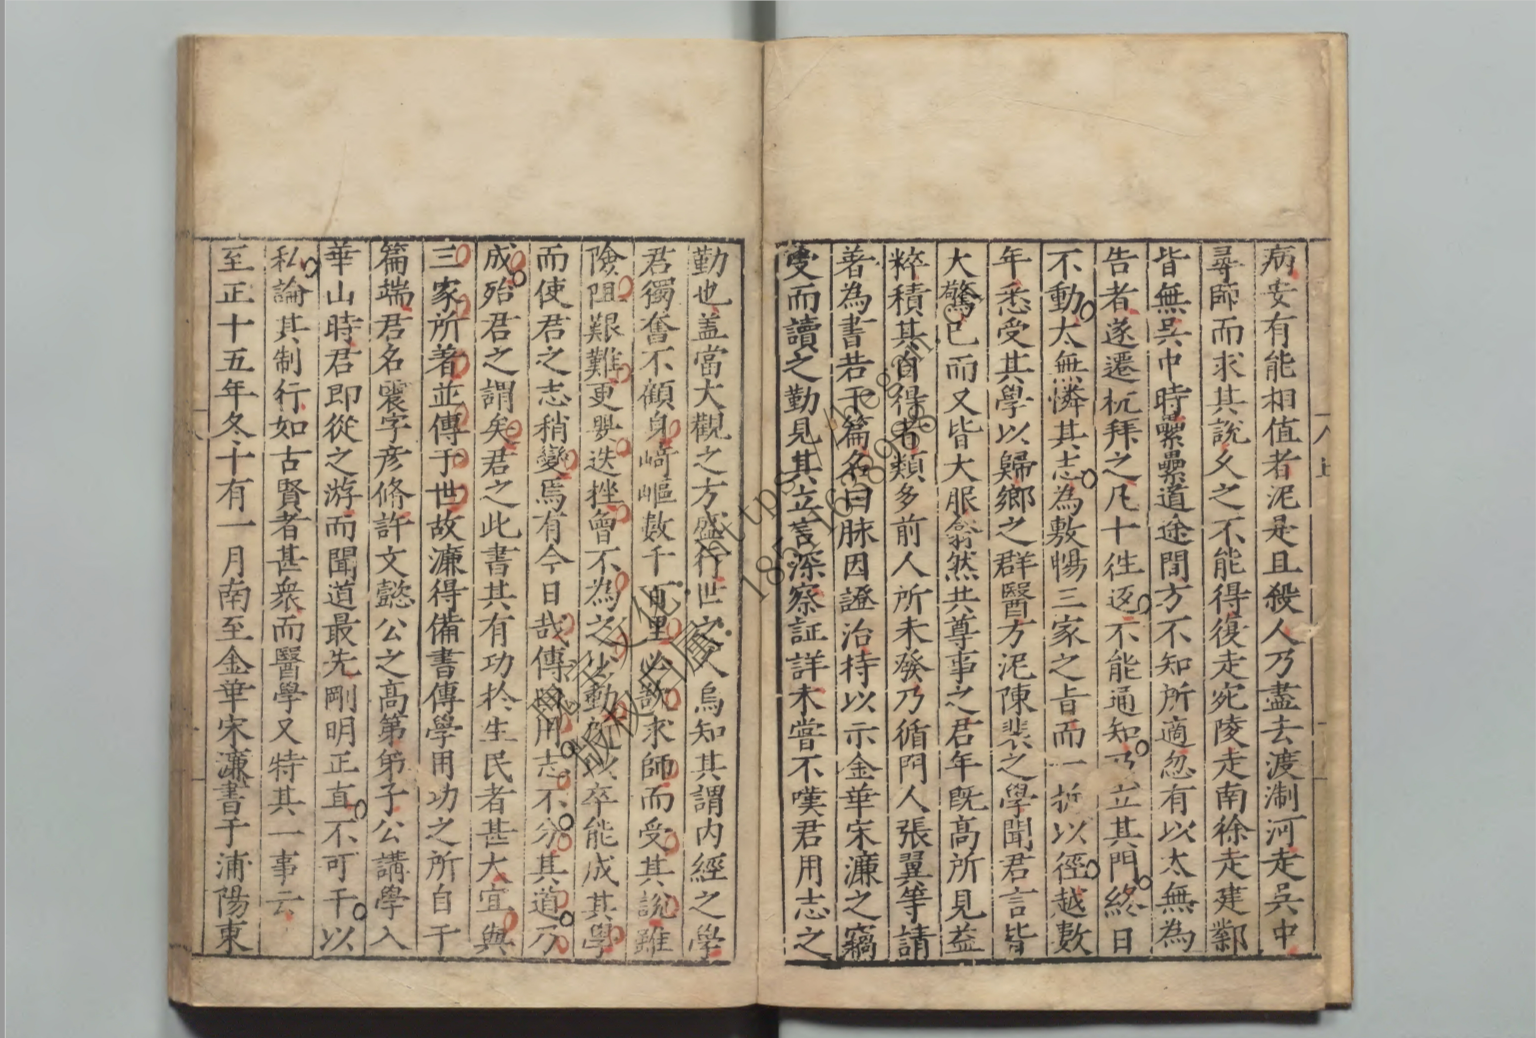 病安有能相值者泥是且殺人乃盡去渡淛河走吳中
尋師而求其說久之不能得復走宛陵走南徐走建鄴
皆無吳中時纍纍道途間方不知所適忽有以太無為
告者遂遷杭拜之凡十徃返不能通知乃立其門終日
不動太無憐其志為敷暢三家之旨而一折以徑越數
年悉受其學以歸鄉之群醫方泥陳裴之學聞君言皆
大驚已而又皆大服翕然共尊事之君年既高所見益
粹積其自得者類多前人所未發乃循門人張翼等請
著為書若干篇名曰脉因證治持以示金華宋濂之竊
受而讀之勤見其立言深察証詳未嘗不嘆君用志之
勤也盖當大觀之方盛行世之人烏知其謂內經之學
君獨奮不顧身﨑嶇数千百里必欲求師而受其說雖
險阻艱難更嬰迭挫會不為之少動 以卒能成其學
而使君之志稍變焉有今日哉傳 用志不分其道乃
成殆君之謂矣君之此書其有功於生民者甚大宜與
三家所著並傳于世故濂得備書傳學用功之所自于
篇端君名震字彦脩許文懿公之高第第子公講學入
華山時君即從之游而聞道最先剛明正直不可干以
私論其制行如古賢者甚衆而醫學又特其一事云
至正十五年冬十有一月南至金華宋濂書于浦陽東